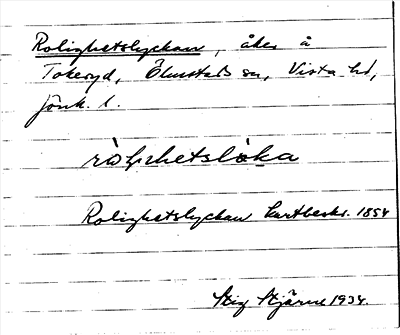 Rolighetslyckan, åker å
Tokeryd, Ölmstads sn, Vista hd,
Jönk. l.
Rolighetslyckan kartbeskr. 1854
Stig Stjärne 1934.